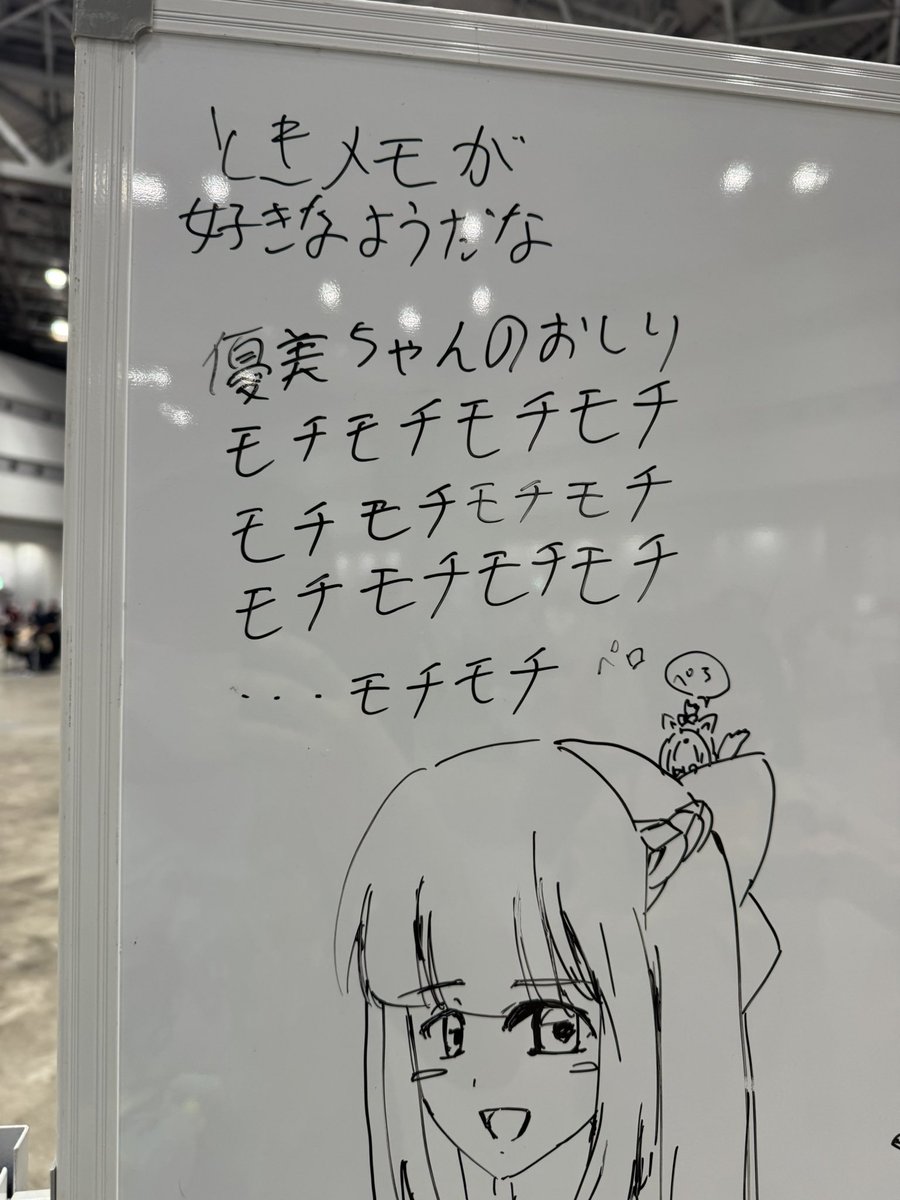 ときメモが
好きなようだな
優美ちゃんのおしり
モチモチモチモチ
モチモチモチモチ
モチモチモチモチ
...モチモチ ペロ
ぺろ